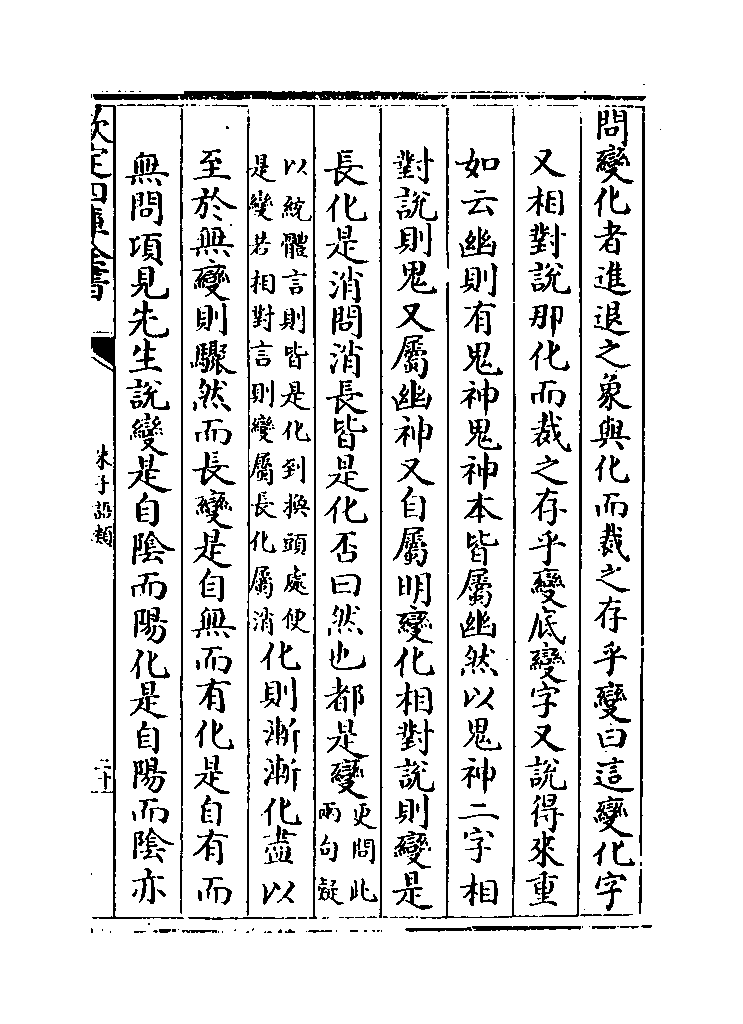 問變化者進退之象與化而裁之存乎變曰這變化字
又相對説那化而裁之存乎變底變字又説得來重
如云幽則有鬼神鬼神本皆屬幽然以鬼神二字相
對説則鬼又屬幽神又自屬明變化相對説則變是
長化是消問消長皆是化否曰然也都是變更問此兩句疑
以統體言則皆是化到換頭處便是變若相對言則變屬長化屬消化則漸漸化盡以
至於無變則驟然而長變是自無而有化是自有而
無問項見先生説變是自陰而陽化是自陽而陰亦
欽定四庫全書
朱子語類